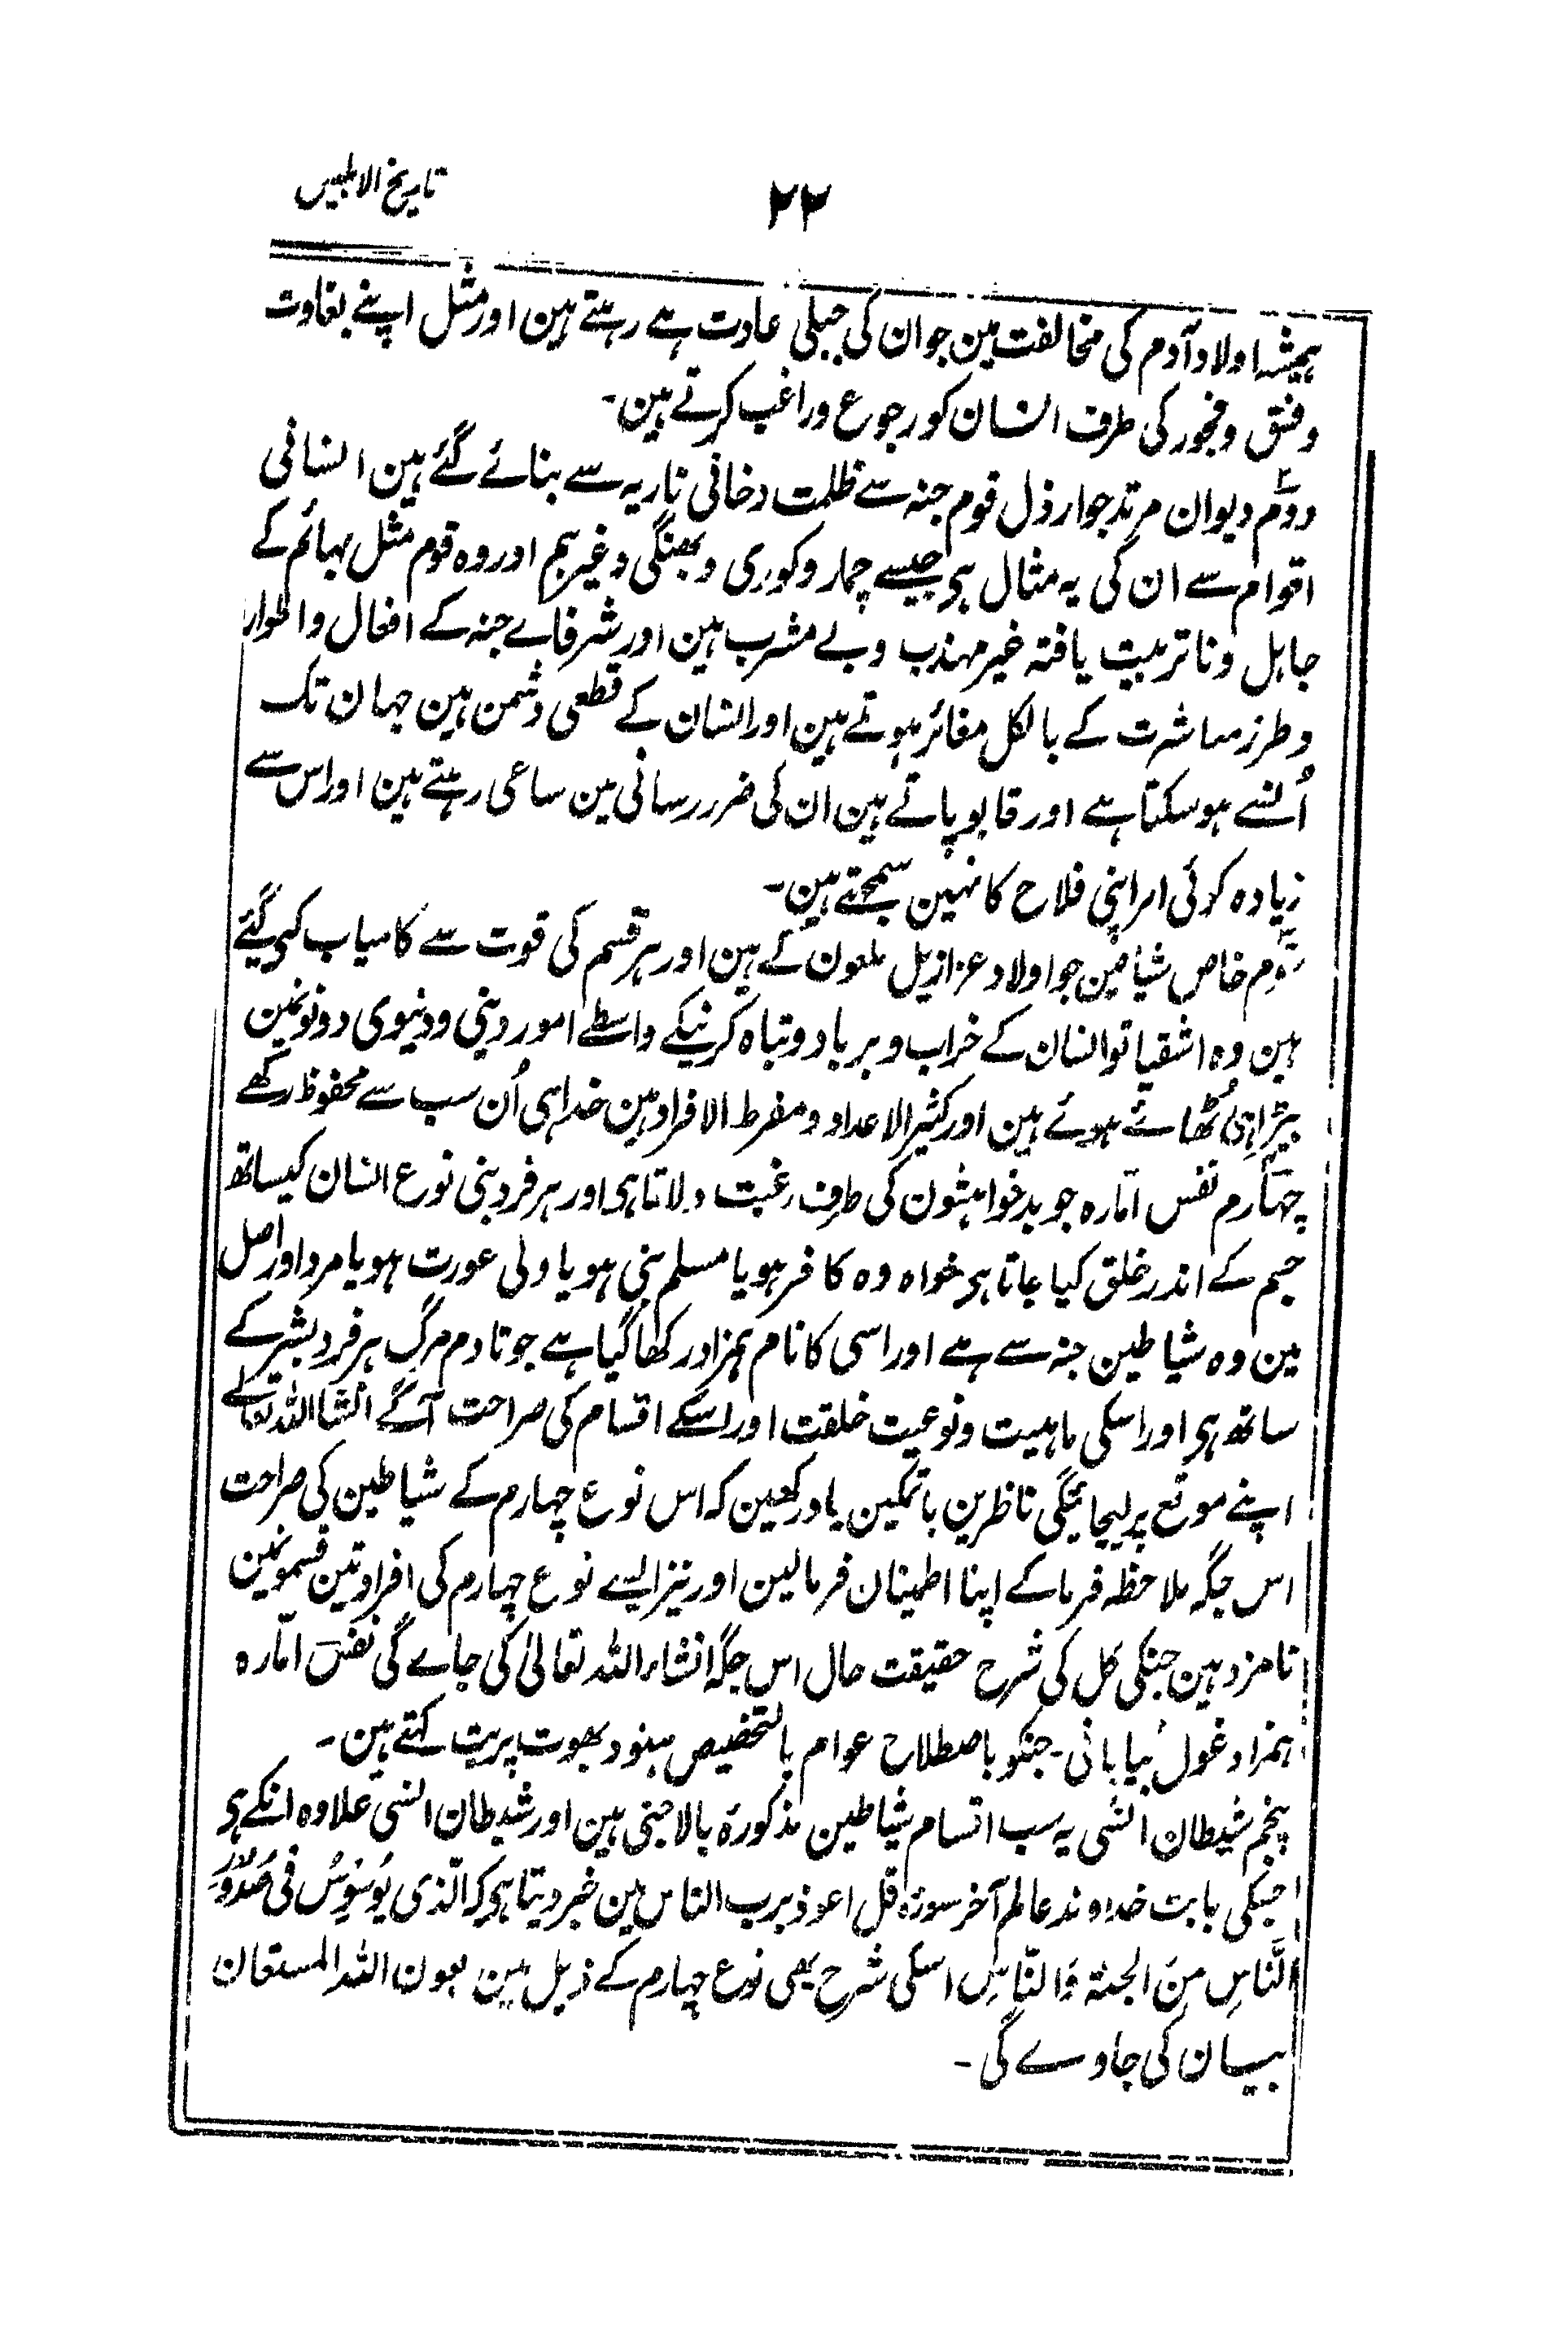 تاریخ الابلیس
۲۲
ہمیشہ اولاد آدم کی مخالفت مین جو ان کی جبلی عادت ہے رہتے ہین اور مثل اپنے بغاوت
و فسق و فجور کی طرف انسان کو رجوع و راغب کرتے ہین۔
دوم دیوان مرتد جو ارذل قوم جنہ سے ظلمت دخانی ناریہ سے بنائے گئے ہین انسانی
اقوام سے ان کی یہ مثال ہی جیسے چمار و کوری و بھنگی وغیرہم اور وہ قوم مثل بہائم کے
جاہل و نا تربیت یافتہ غیر مہذب و بے مشرب ہین اور شرفاے جنہ کے افعال و اطوار
و طرز معاشرت کے بالکل مغائر ہوتے ہین اور انسان کے قطعی دشمن ہین جہان تک
اُنسے ہو سکتا ہے اور قابو پاتے ہین ان کی ضرر رسانی مین ساعی رہتے ہین اور اس سے
زیادہ کوئی امر اپنی فلاح کا نہین سمجھتے ہین۔
سوم خاص شیاطین جو اولاد عزازیل ملعون کے ہین اور ہر قسم کی قوت سے کامیاب کیے گئے
ہین وہ اشقیا تو انسان کے خراب و برباد و تباہ کرنیکے واسطے امور دینی و دنیوی دونونمین
بیڑا ہی اُٹھائے ہوئے ہین اور کثیر الاعداد و مفرط الافراد ہین خدا ہی اُن سب سے محفوظ رکھے
چہارم نفس امّارہ جو بد خواہشون کی طرف رغبت دلاتا ہی اور ہر فرد بنی نوع انسان کیساتھ
جسم کے اندر خلق کیا جاتا ہی خواہ وہ کافر ہو یا مسلم نبی ہو یا ولی عورت ہو یا مرد اور اصل
مین وہ شیاطین جنہ سے ہے اور اسی کا نام ہمزاد رکھا گیا ہے جو تا دم مرگ ہر فرد بشر کے
ساتھ ہی اور اسکی ماہیت و نوعیت خلقت اور اسکے اقسام کی صراحت آگے انشا اللہ تعالے
اپنے موقع پر لیجائیگی ناظرین باتمکین یاد رکھین کہ اس نوع چہارم کے شیاطین کی صراحت
اس جگہ ملاحظہ فرما کے اپنا اطمینان فرمالین اور نیز ایسے نوع چہارم کی افراد تین قسمونمین
نامزد ہین جنکی کل کی شرح حقیقت حال اس جگہ انشاء اللہ تعالیٰ کی جاے گی نفس امّارہ
ہمزاد غول بیابانی۔ جنکو باصطلاح عوام بالتخصیص ہنود بھوت پریت کہتے ہین۔
پنجم شیطان انسی یہ سب اقسام شیاطین مذکورہ بالا جنی ہین اور شیطان انسی علاوہ انکے ہی
جنکی بابت خداوند عالم آخر سورۂ قل اعوذ برب الناس مین خبر دیتا ہی کہ الّذی یُوَسْوِسُ فی صُدُورِ
النَّاسِ مِنَ الجنّۃ وَالنّاسِ اسکی شرح بھی نوع چہارم کے ذیل مین بعون اللہ المستعان
بیان کی جاوے گی۔